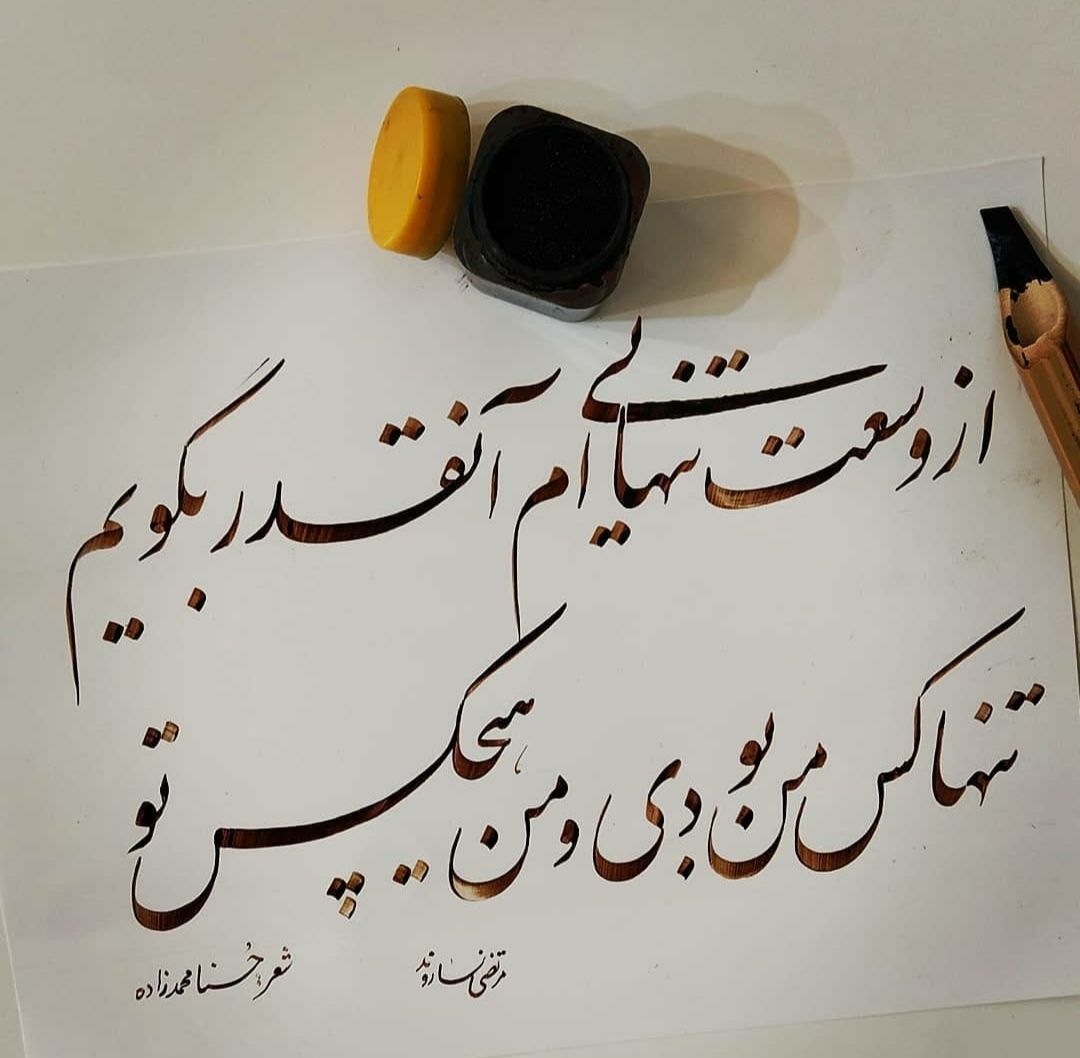 از وسعت تنهایی ام آنقدر بگویم
تنها کس من بودی و من هیچکس تو
شعر: حُسنا محمدزاده
مرتضی سازوند